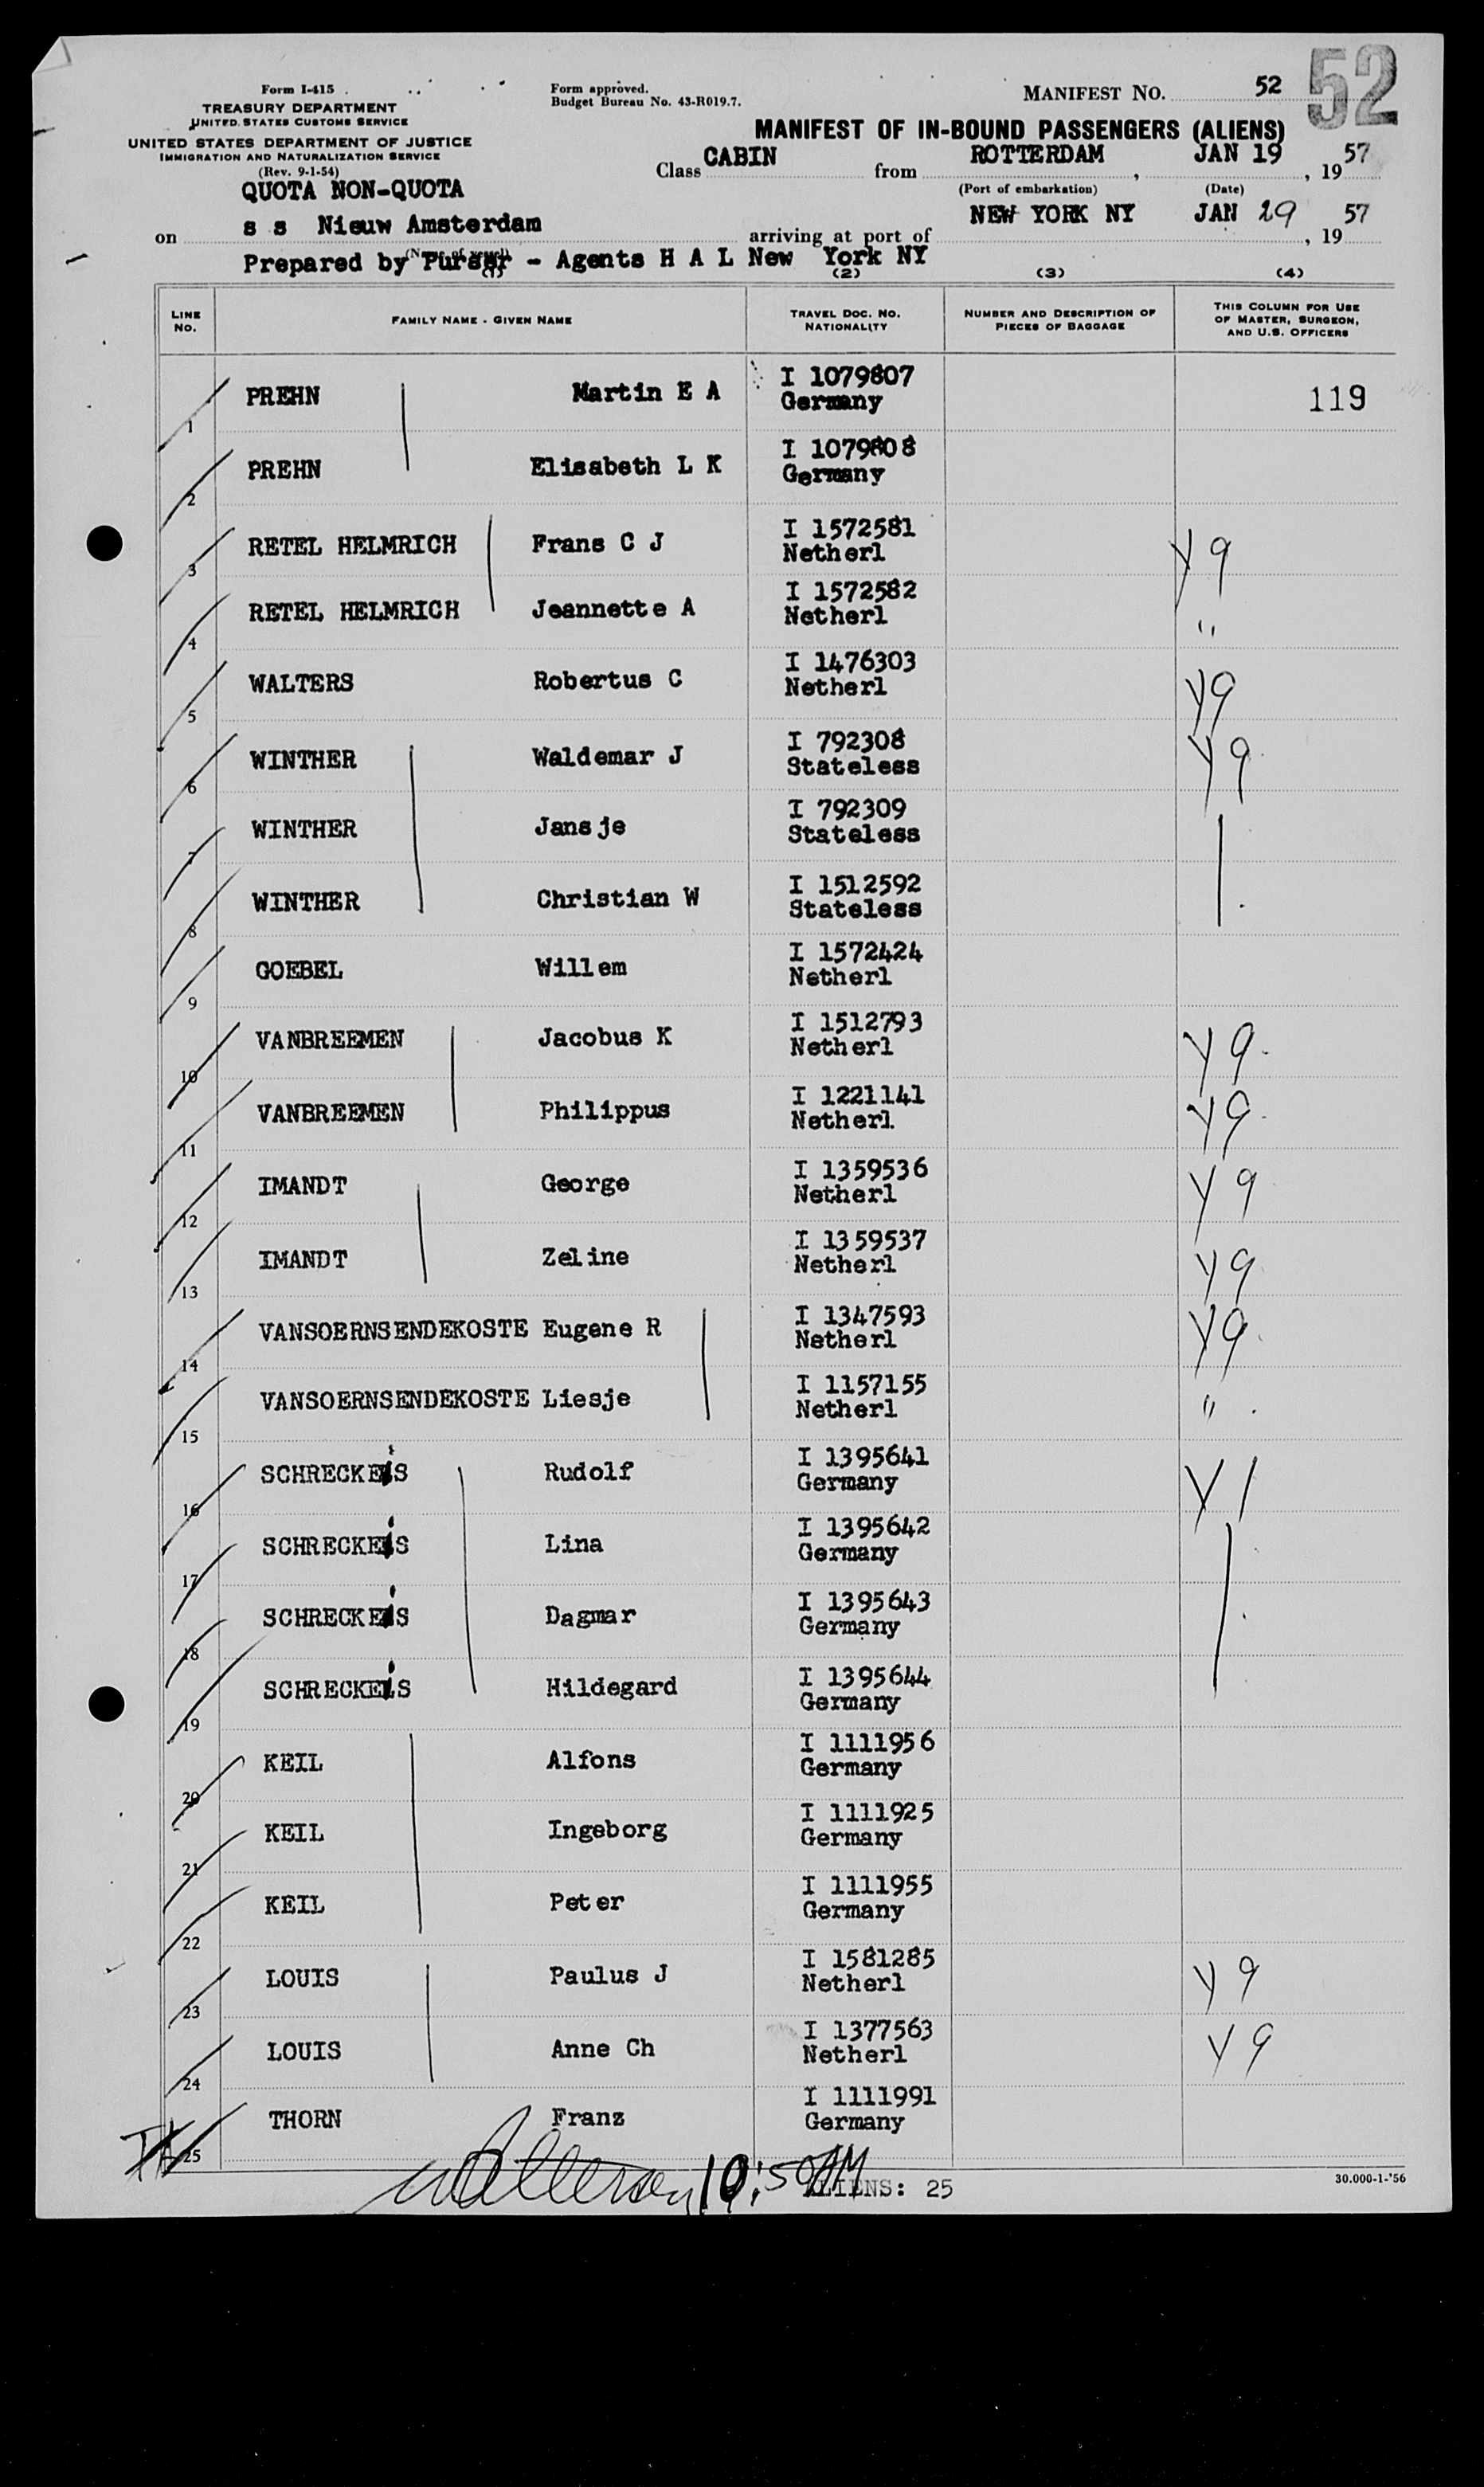 52
Form I-415
TREASURY DEPARTMENT
UNITED STATES CUSTOMS SERVICE
UNITED STATES DEPARTMENT OF JUSTICE
IMMIGRATION AND NATURALIZATION SERVICE
(Rev. 9-1-54)
Form approved.
Budget Bureau No. 43-R019.7.
MANIFEST NO. 52
MANIFEST OF IN-BOUND PASSENGERS (ALIENS)
QUOTA NON-QUOTA
Class CABIN from ROTTERDAM, JAN 19, 1957
(Port of embarkation) (Date)
on s s Nieuw Amsterdam arriving at port of NEW YORK NY JAN 29, 1957
Prepared by Purser - Agents H A L New York NY
(1) (2) (3) (4)
LINE NO. FAMILY NAME - GIVEN NAME TRAVEL DOC. NO. NATIONALITY NUMBER AND DESCRIPTION OF PIECES OF BAGGAGE THIS COLUMN FOR USE OF MASTER, SURGEON, AND U.S. OFFICERS
1 PREHN Martin E A I 1079807 Germany 119
2 PREHN Elisabeth L K I 1079808 Germany
3 RETEL HELMRICH Frans C J I 1572581 Netherl Y9
4 RETEL HELMRICH Jeannette A I 1572582 Netherl "
5 WALTERS Robertus C I 1476303 Netherl Y9
6 WINTHER Waldemar J I 792308 Stateless Y9
7 WINTHER Jansje I 792309 Stateless
8 WINTHER Christian W I 1512592 Stateless
9 GOEBEL Willem I 1572424 Netherl
10 VANBREEMEN Jacobus K I 1512793 Netherl Y9
11 VANBREEMEN Philippus I 1221141 Netherl Y9
12 IMANDT George I 1359536 Netherl Y9
13 IMANDT Zeline I 1359537 Netherl Y9
14 VANSOERNSENDEKOSTE Eugene R I 1347593 Netherl Y9
15 VANSOERNSENDEKOSTE Liesje I 1157155 Netherl "
16 SCHRECKEIS Rudolf I 1395641 Germany Y1
17 SCHRECKEIS Lina I 1395642 Germany
18 SCHRECKEIS Dagmar I 1395643 Germany
19 SCHRECKEIS Hildegard I 1395644 Germany
20 KEIL Alfons I 1111956 Germany
21 KEIL Ingeborg I 1111925 Germany
22 KEIL Peter I 1111955 Germany
23 LOUIS Paulus J I 1581285 Netherl Y9
24 LOUIS Anne Ch I 1377563 Netherl Y9
25 THORN Franz I 1111991 Germany
10:50AM
ALIENS: 25
30.000-1-'56